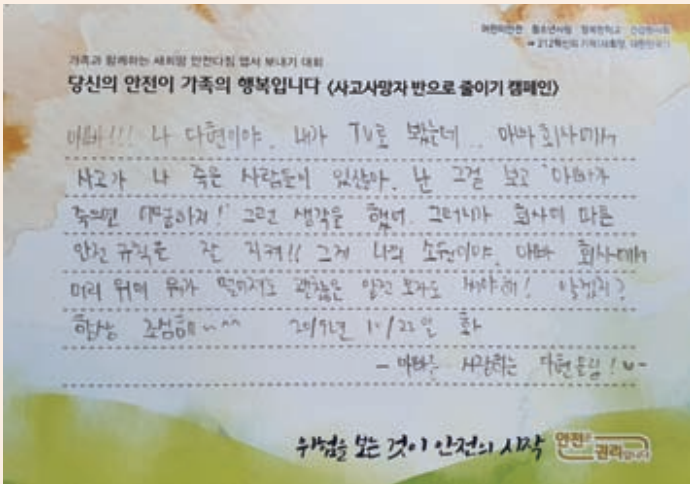 어린이안전 청소년사랑 행복한학교 건강한사회
가족과 함께하는 새희망 안전다짐 엽서 보내기 대회
당신의 안전이 가족의 행복입니다 <사고사망자 반으로 줄이기 캠페인>
아빠!!! 나 다현이야. 내가 TV로 봤는데.. 아빠 회사에서
사고가 나 죽은 사람들이 있잖아. 난 그걸 보고 '아빠가
죽으면 어떡하지!' 그런 생각을 했어. 그러니까 회사의 다른
안전 규칙은 잘 지켜!! 그게 나의 소원이야. 아빠 회사에서
머리 위에 뭐가 떨어져도 괜찮은 안전 모자도 써야해! 알겠지?
항상 조심해~^^ 2019년 10/22일 화
- 아빠를 사랑하는 다현올림! ~-
위험을 보는 것이 안전의 시작 안전은 권리입니다